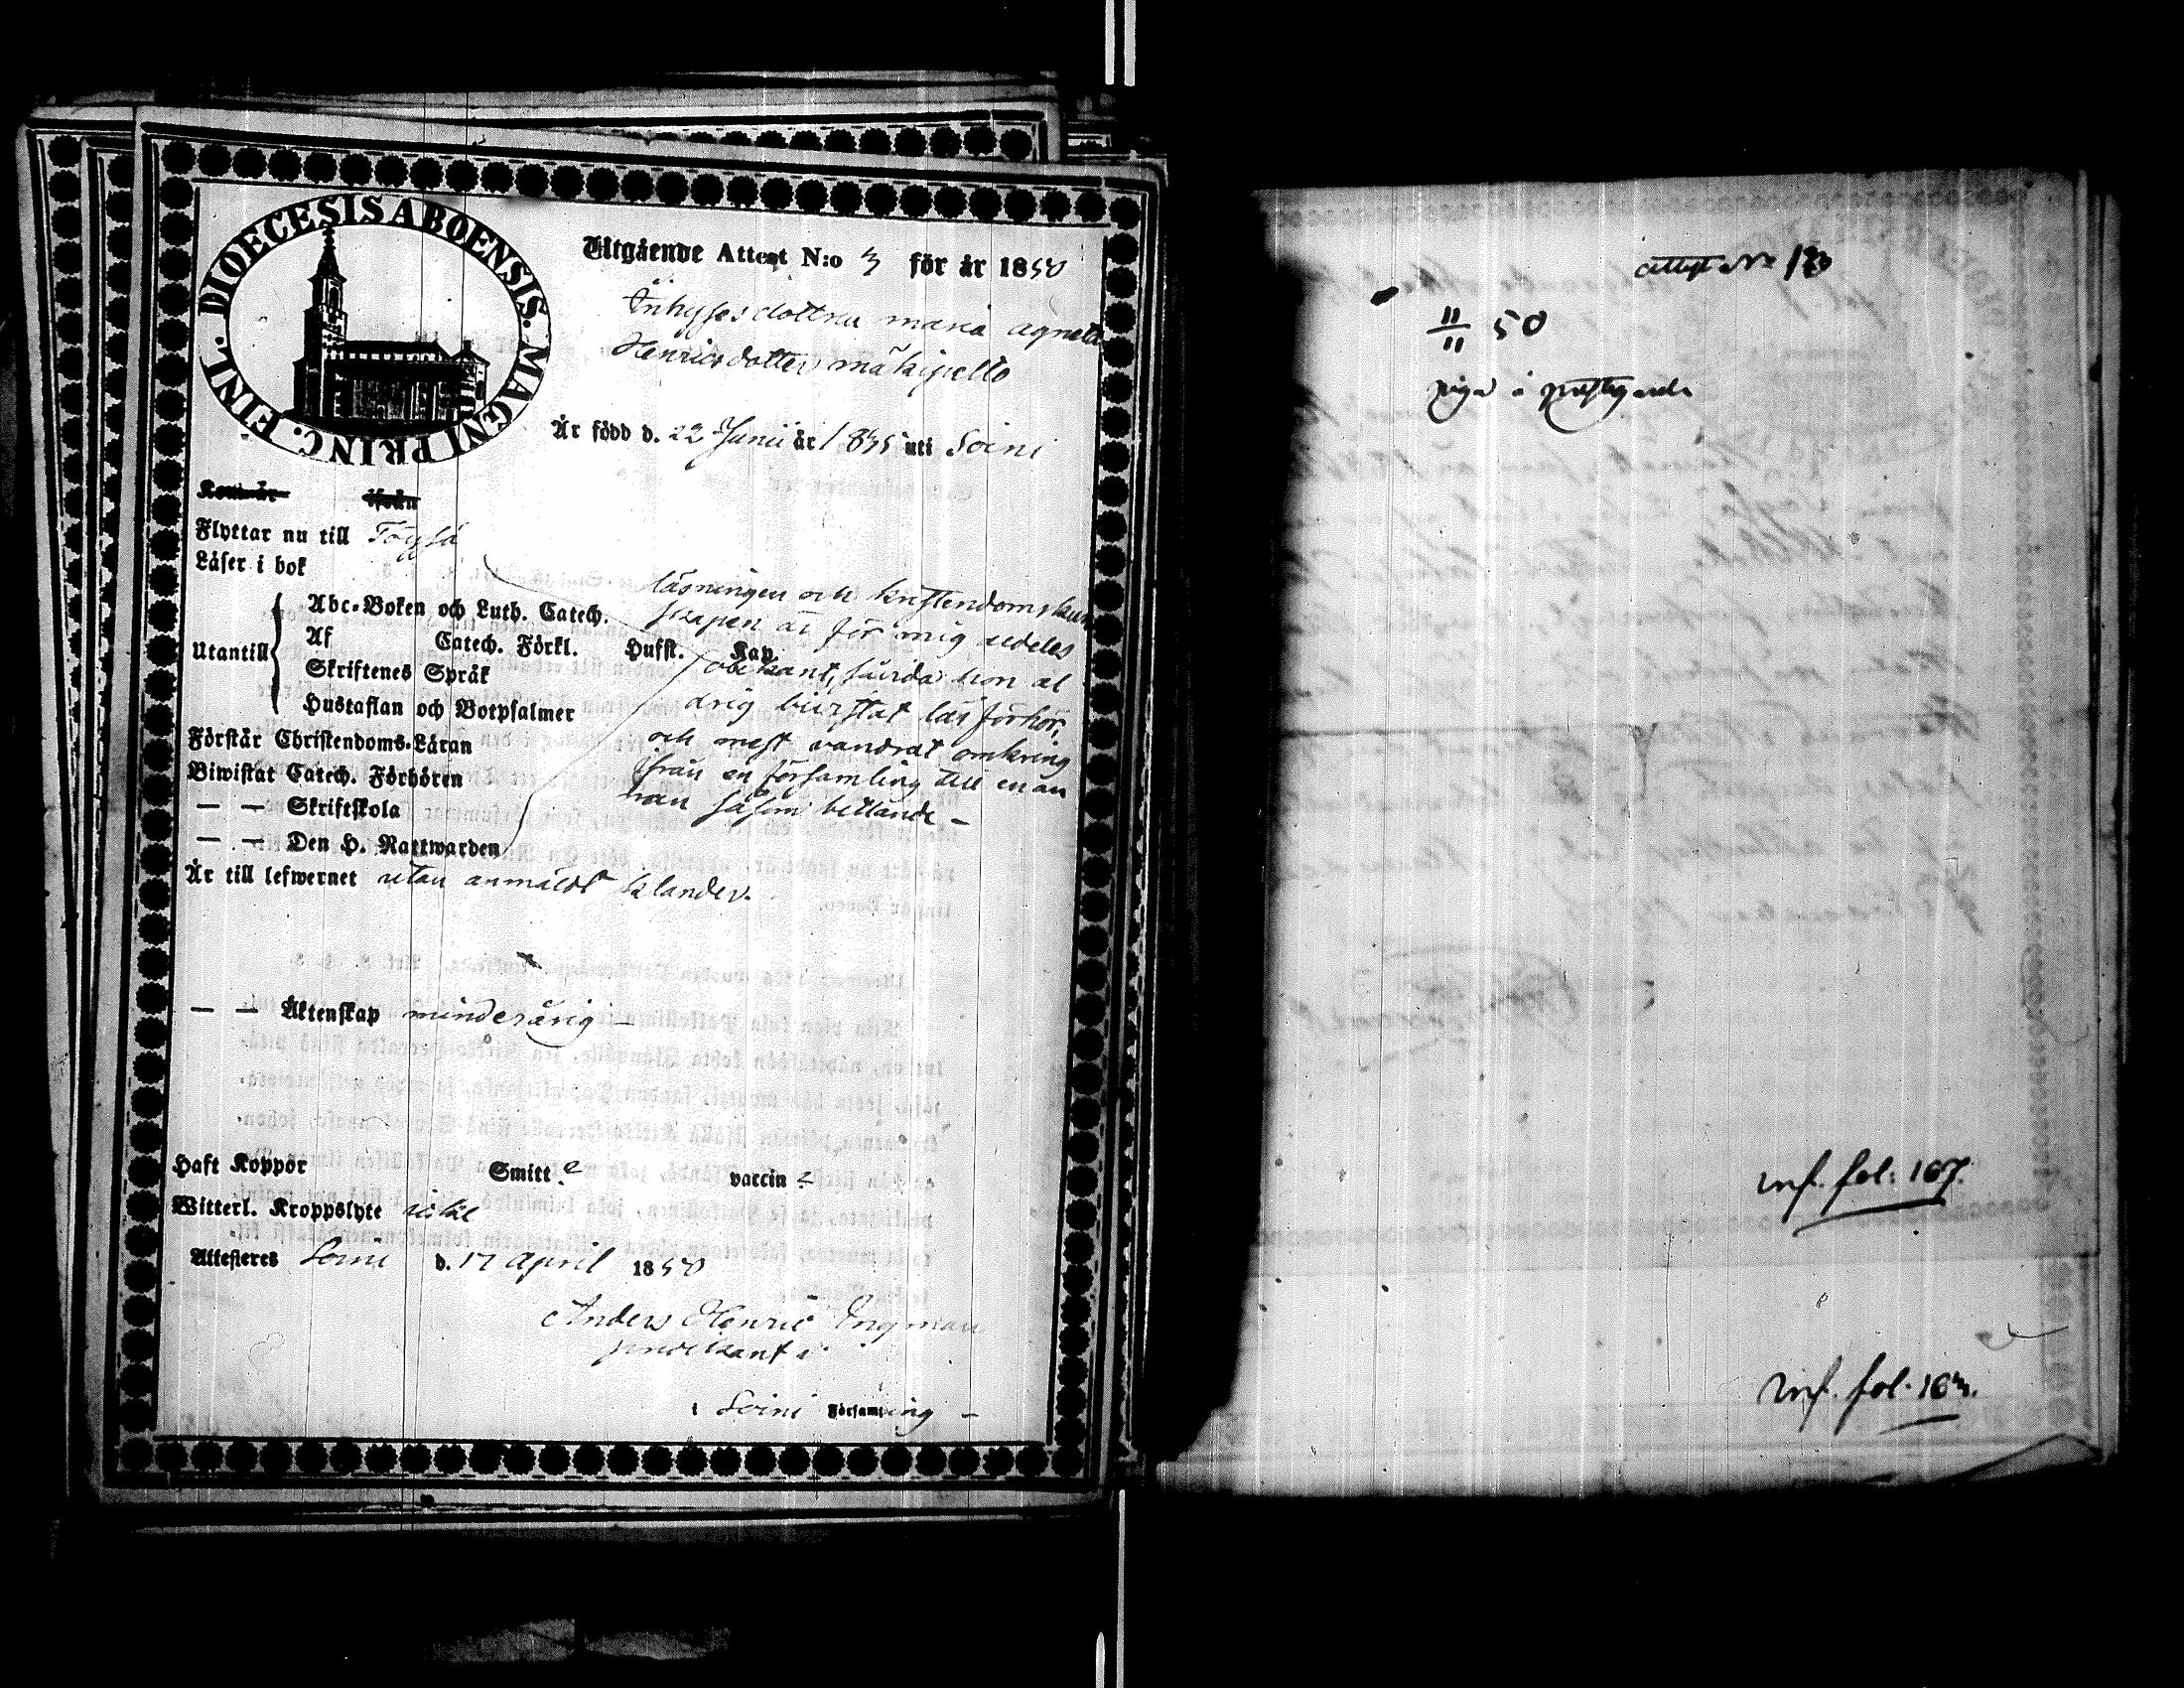 DIOECESIS ABOENSIS. MAGNI PRINC. FINL.
Utgående Attest N:o 3 för år 1850
Inhyses dottren maria agneta
Henricsdotter mäkipelto
Är född d. 22 Junii år 1835 uti Soini
Kom år ifrån
Flyttar nu till Töysä
Läser i bok
Utantill
Abc-Boken och Luth. Catech.
Af Catech. Förkl. Husst. Kap.
Skriftenes Språk
Hustaflan och Botpsalmer
Förstår Christendoms-Läran
Biwistat Catech. Förhören
— — Skriftskola
— — Den H. Nattwarden
läsningen och kristendomskun
skapen är för mig aldeles
obekant, hon al
drig bivistat läsförhör,
och mest vandrat omkring
ifrån en församling till en an
nan såsom bettlande –
Är till lefwernet utan anmäldt klander.
— — Äktenskap minderårig –
Haft Koppor Smitt. vaccin
Witterl. Kroppslyte icke
Attesteres Soini d. 17 April 1850
Anders Henric Ingman
predikant i
i Soini Församling –
attest No
11/11 50
piga i prestgården
inf. fol: 167.
inf. fol. 163.